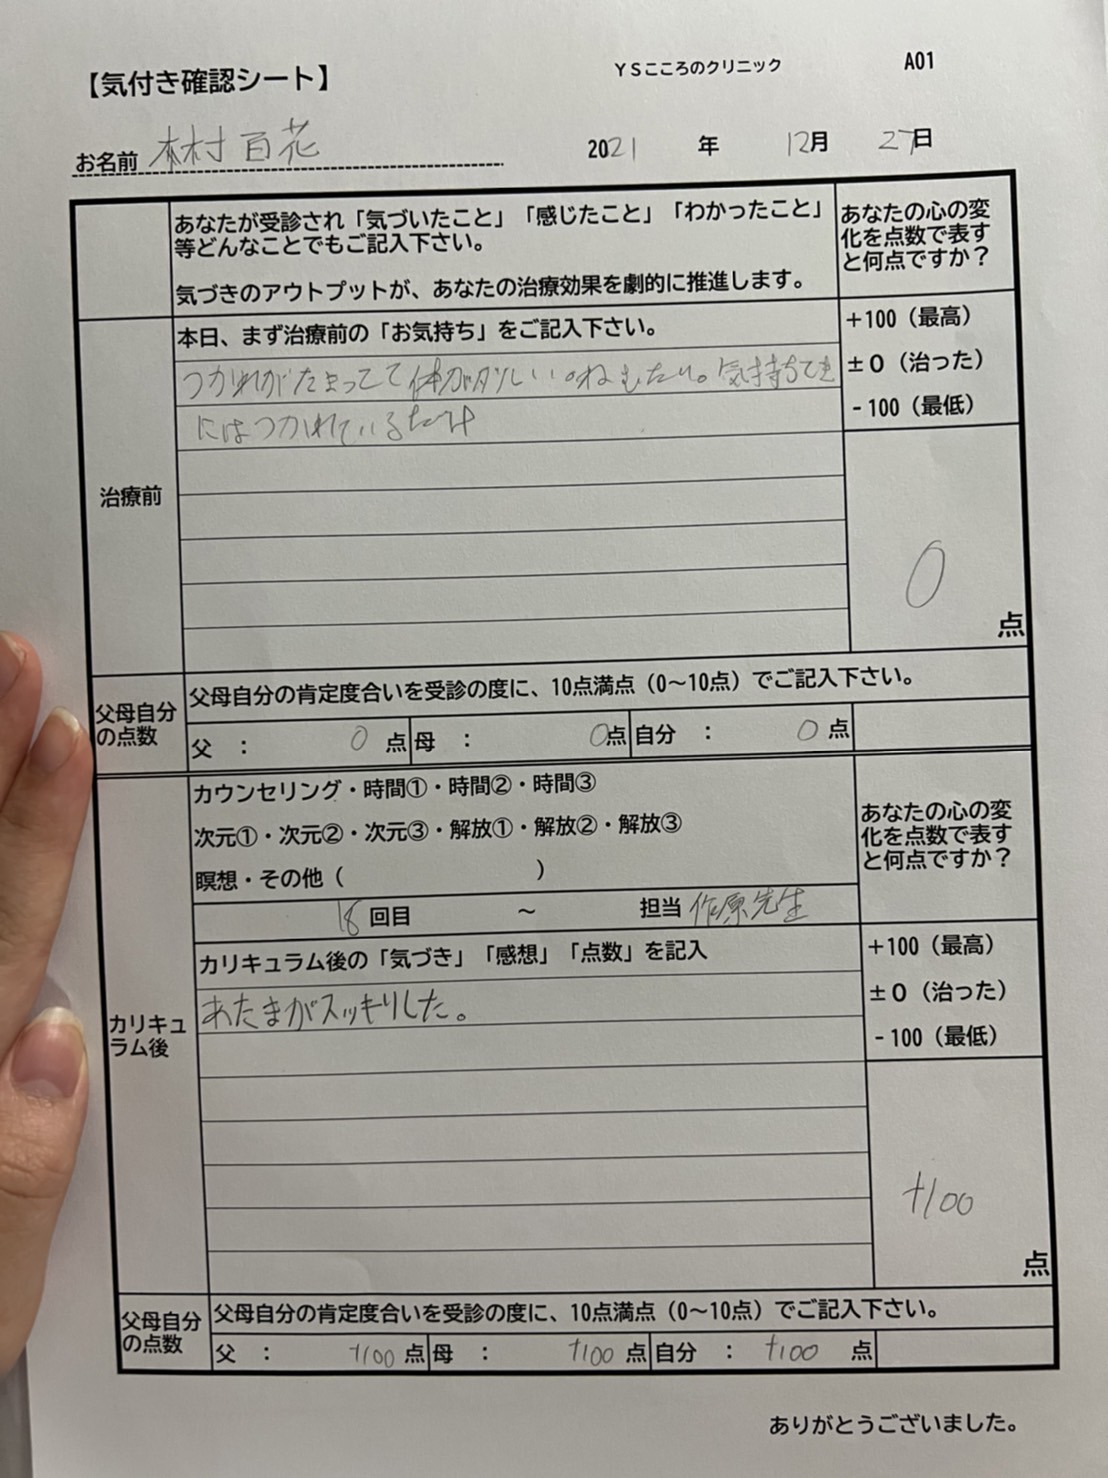 【気付き確認シート】
YSこころのクリニック
A01
お名前 林村 百花
2021年 12月 27日
あなたが受診され「気づいたこと」「感じたこと」「わかったこと」
等どんなことでもご記入下さい。
気づきのアウトプットが、あなたの治療効果を劇的に推進します。
あなたの心の変
化を点数で表す
と何点ですか？
治療前
本日、まず治療前の「お気持ち」をご記入下さい。
つかれがたまってて体が グルしい。ねむたい。気持ちてき
にはつかれているだけ
+100（最高）
±0（治った）
-100（最低）
0
点
父母自分
の点数
父母自分の肯定度合いを受診の度に、10点満点（0～10点）でご記入下さい。
父 ： 0 点 母 ： 0点 自分 ： 0 点
カリキュ
ラム後
カウンセリング・時間①・時間②・時間③
次元①・次元②・次元③・解放①・解放②・解放③
瞑想・その他（ ）
18回目 ～ 担当 作原先生
あなたの心の変
化を点数で表す
と何点ですか？
カリキュラム後の「気づき」「感想」「点数」を記入
あたまがスッキリした。
+100（最高）
±0（治った）
-100（最低）
+100
点
父母自分
の点数
父母自分の肯定度合いを受診の度に、10点満点（0～10点）でご記入下さい。
父 ： +100 点 母 ： +100 点 自分 ： +100 点
ありがとうございました。